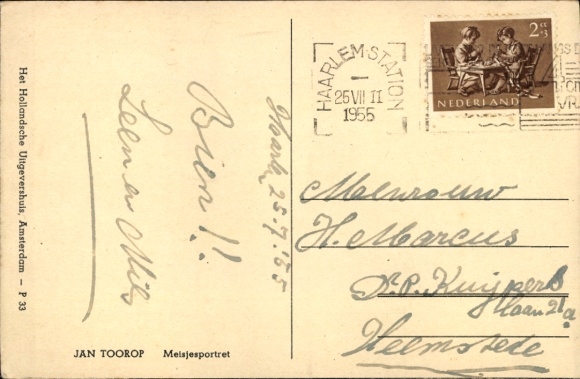 Het Hollandsche Uitgevershuis, Amsterdam — P 33
JAN TOOROP Meisjesportret
Haarl. 25.7.'55
Bien!!
Leen en Mils
HAARLEM-STATION
25 VII 11
1955
2 ct
+3
NEDERLAND
Mevrouw
H. Marcus
Dr. P. Kuypers
laan 21a
Heemstede